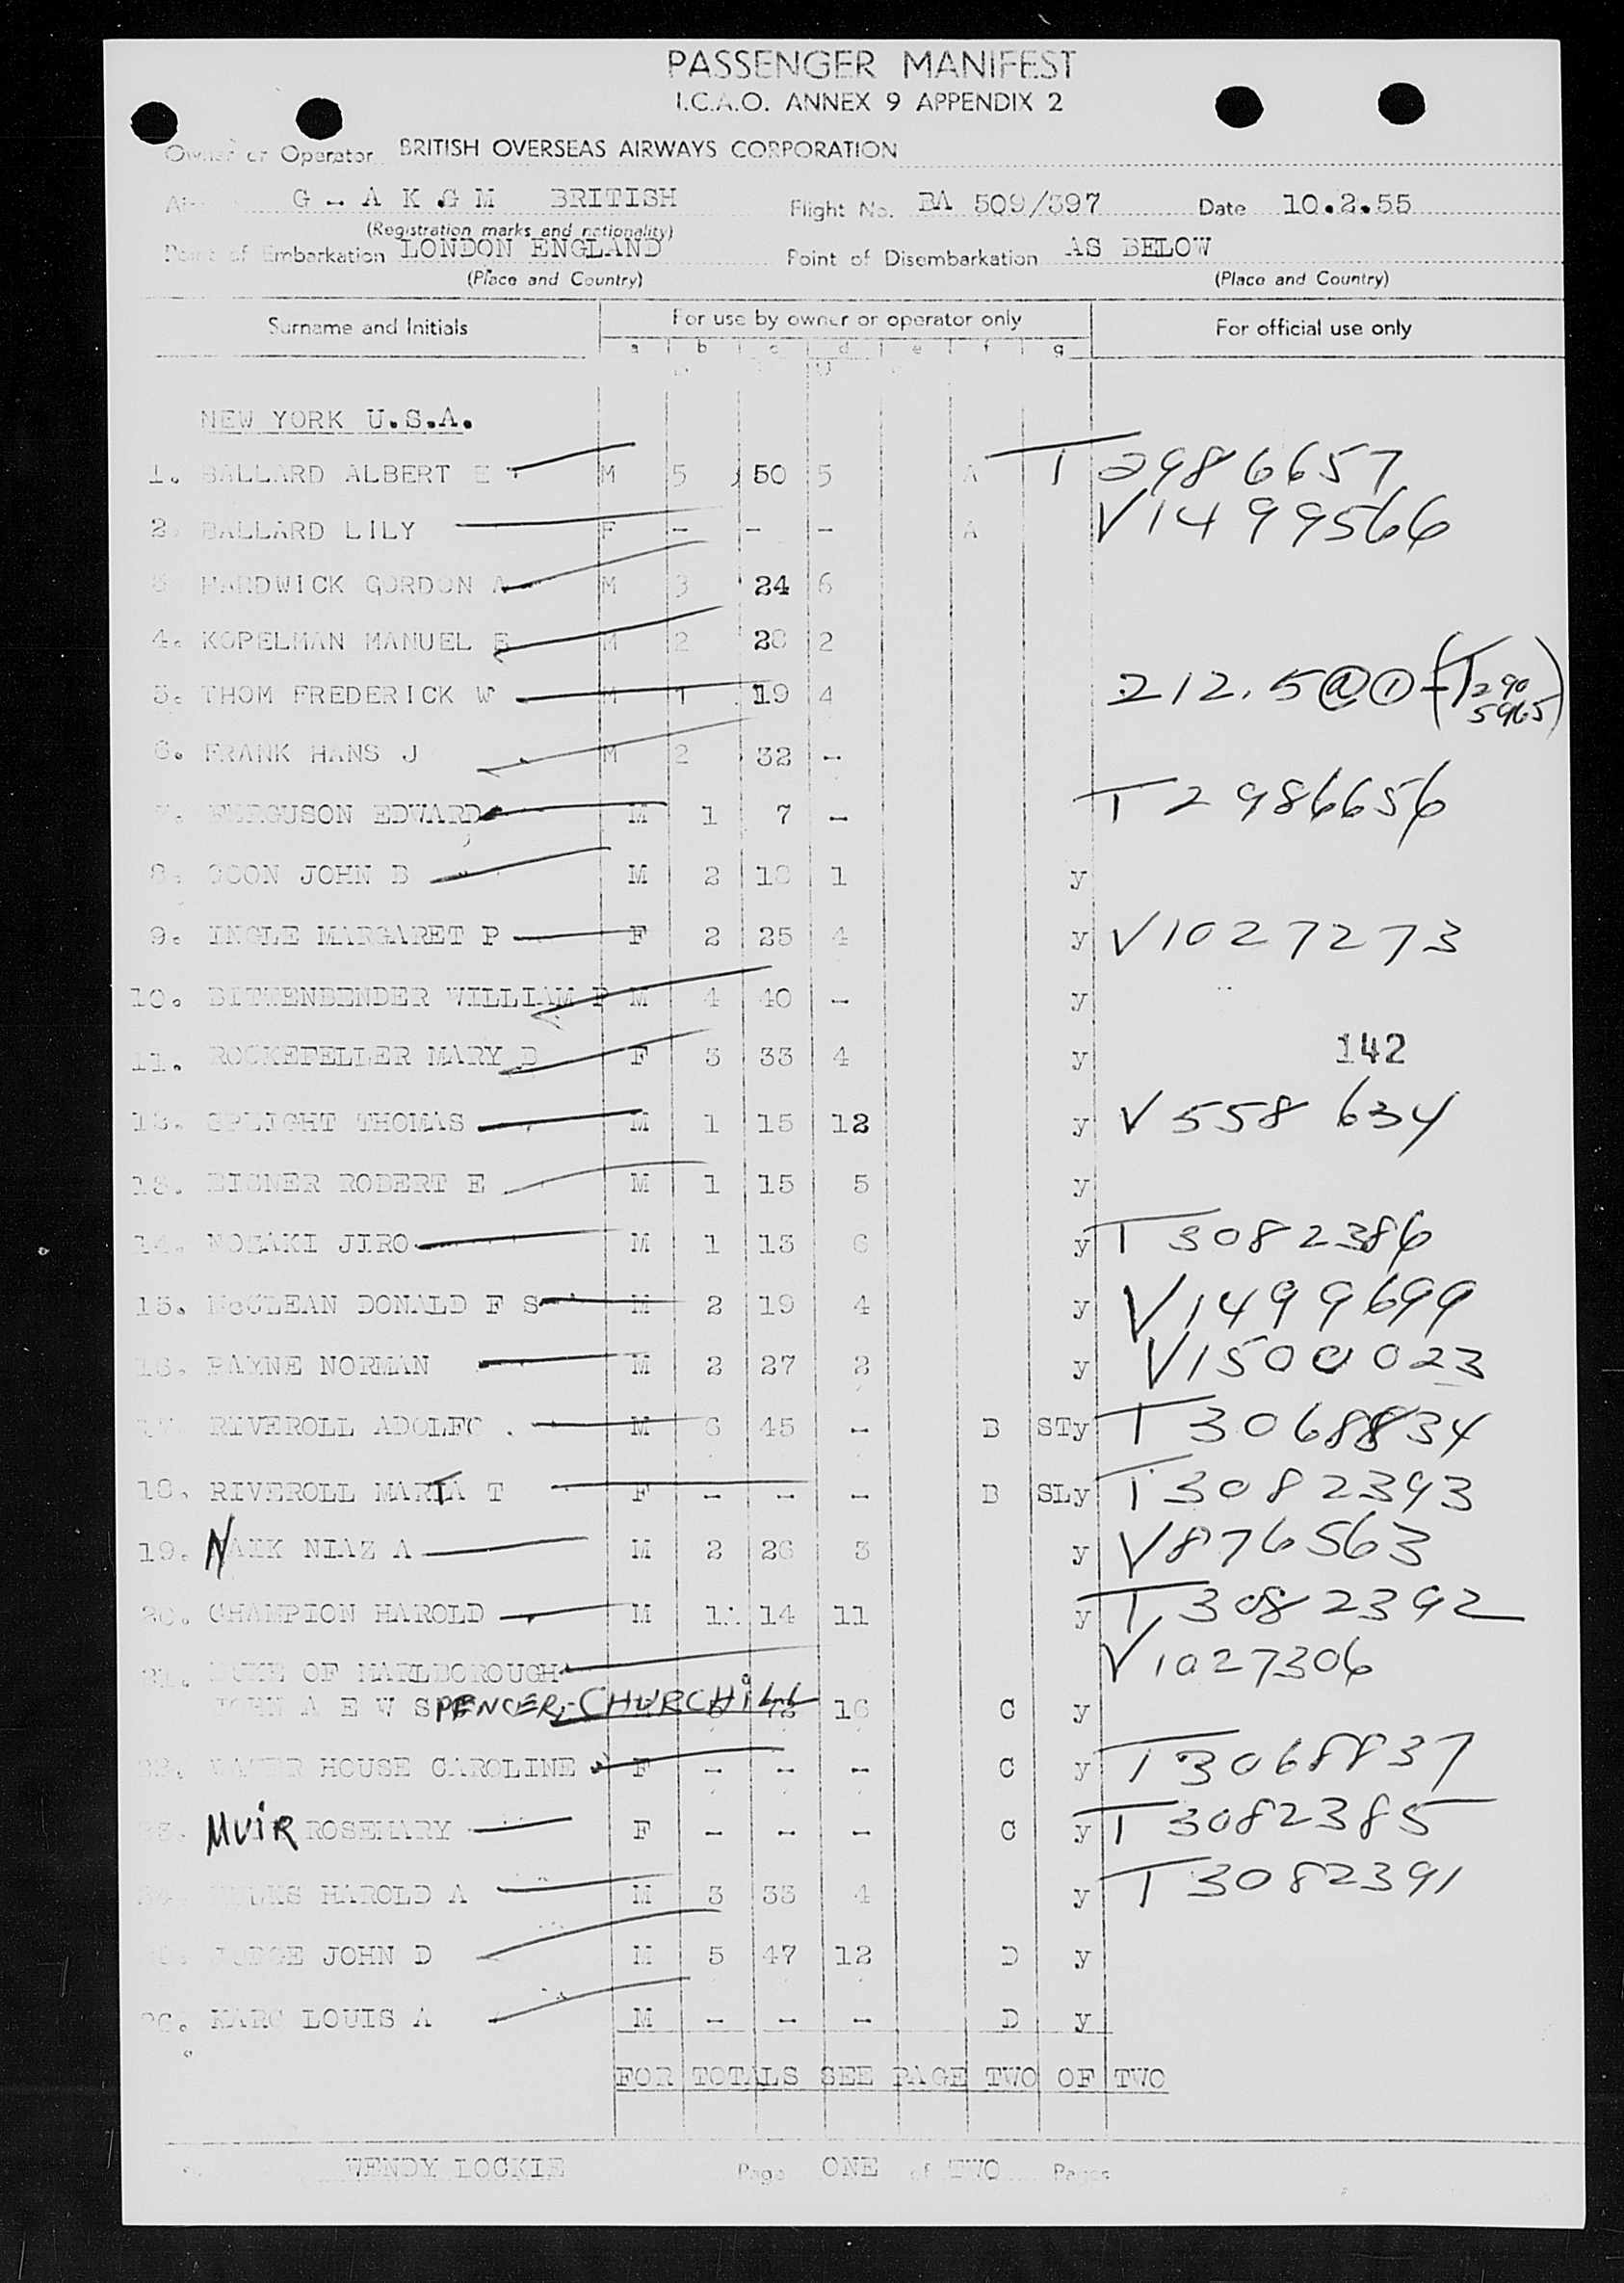 PASSENGER MANIFEST
I.C.A.O. ANNEX 9 APPENDIX 2
Owner or Operator BRITISH OVERSEAS AIRWAYS CORPORATION
G - A K G M BRITISH Flight No. BA 509/397 Date 10.2.55
(Registration marks and nationality)
Point of Embarkation LONDON ENGLAND Point of Disembarkation AS BELOW
(Place and Country) (Place and Country)
Surname and Initials For use by owner or operator only For official use only
a b c d e f g
NEW YORK U.S.A.
1. BALLARD ALBERT E M 5 50 5 A T 2986657
2. BALLARD LILY F - - - A V1499566
3 HARDWICK GORDON A M 3 24 6
4. KOPELMAN MANUEL E M 2 28 2
5. THOM FREDERICK W M 1 19 4 212.5@① - (T290 5965)
6. FRANK HANS J M 2 32 -
7. FERGUSON EDWARD M 1 7 - T2986656
8. GOON JOHN B M 2 18 1 y
9. INGLE MARGARET P F 2 25 4 y V1027273
10. BITTENBENDER WILLIAM P M 4 40 - y
11. ROCKEFELLER MARY B F 3 33 4 y 142
12. THOMAS M 1 15 12 y V558 634
13. ROBERT E M 1 15 5 y
14. NOZAKI JIRO M 1 13 6 y T3082386
15. McCLEAN DONALD F S M 2 19 4 y V1499699
16. PAYNE NORMAN M 2 27 2 y V1500023
17. RIVEROLL ADOLFO . M 6 45 - B STy T3068834
18. RIVEROLL MARTA T F - - - B SLy T3082393
19. NAIK NIAZ A M 2 26 3 y V876563
20. CHAMPION HAROLD M 1 14 11 y T3082392
21. DUKE OF MARLBOROUGH V1027306
JOHN A E W SPENCER-CHURCHiLL 16 C y
22. WATER HOUSE CAROLINE F - - - C y T3068837
23. MUiR ROSEMARY F - - - C y T3082385
24. HAROLD A M 3 33 4 y T3082391
25. JUDGE JOHN D M 5 47 12 D y
26. LOUIS A M - - - D y
FOR TOTALS SEE PAGE TWO OF TWO
WENDY LOCKIE Page ONE of TWO Pages